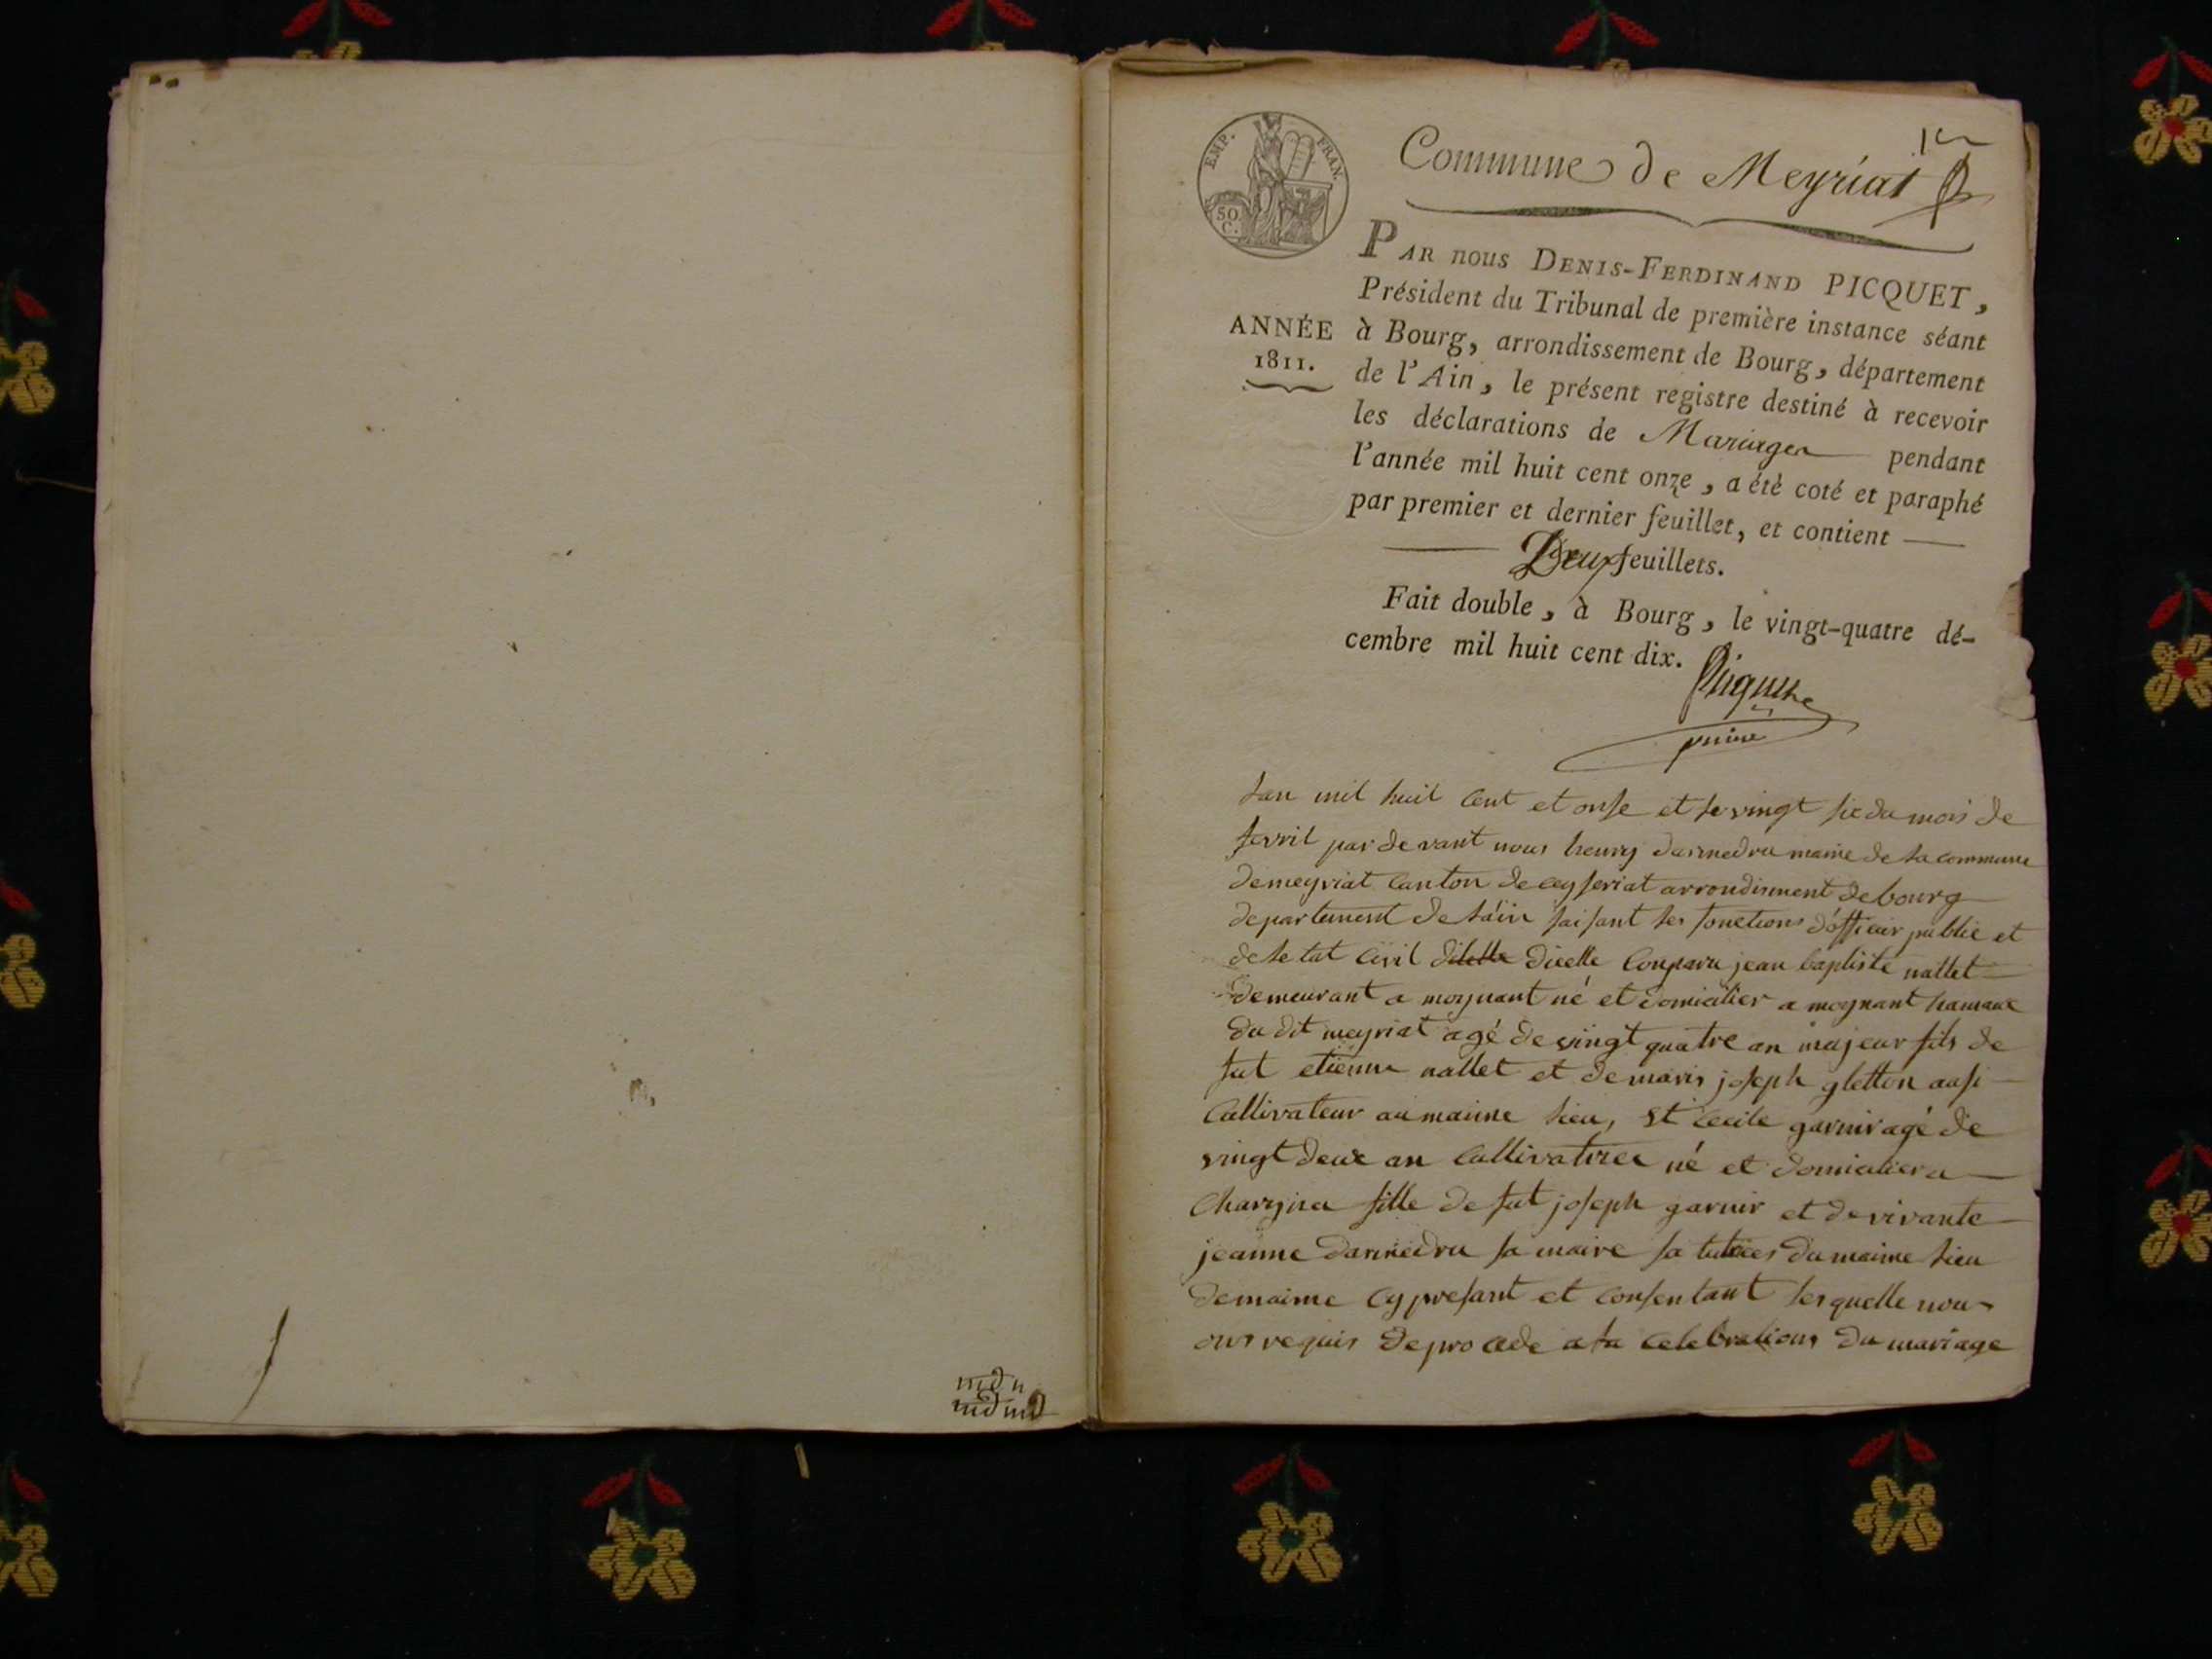 EMP. FRAN.
50
C.
Commune de Meyriat
1er
PAR nous DENIS-FERDINAND PICQUET,
Président du Tribunal de première instance séant
ANNÉE
1811.
à Bourg, arrondissement de Bourg, département
de l'Ain, le présent registre destiné à recevoir
les déclarations de Mariages pendant
l'année mil huit cent onze, a été coté et paraphé
par premier et dernier feuillet, et contient
Deux feuillets.
Fait double, à Bourg, le vingt-quatre dé-
cembre mil huit cent dix.
Picquet
lan mil huit cent et onse et le vingt sic du mois de
fevril par devant nous henry darmedru maire de la commune
de meyriat canton de ceyseriat arrondisment de bourg
departement de lain faisant les fonctions d'officier public et
de le tat civil dicelle conparu jean baptiste nallet
demeurant a moynant né et domicilier a moynant hamaux
du dit meyriat agé de vingt quatre an majeur fils de
fut etienne nallet et de maris joseph gletton ausi
Cultivateur au maime lieu, et cecile garnir agé de
vingt deux an cultivatrice né et domicilier a
fille de fut joseph garnir et de vivante
jeanne darmedru sa maire sa tutrices du maime lieu
de maime cy presant et consentant lesquelle nou
ons requis de pro cede a la celebrations du mariage